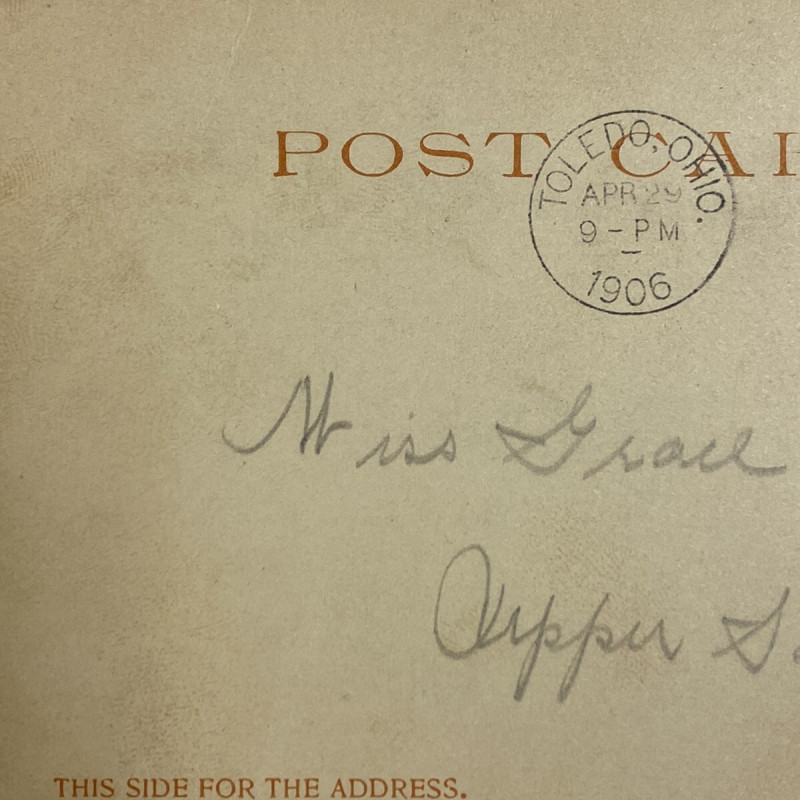 POST CAR
TOLEDO, OHIO.
APR 29
9 - PM
1906
Miss Grace
Upper S
THIS SIDE FOR THE ADDRESS.